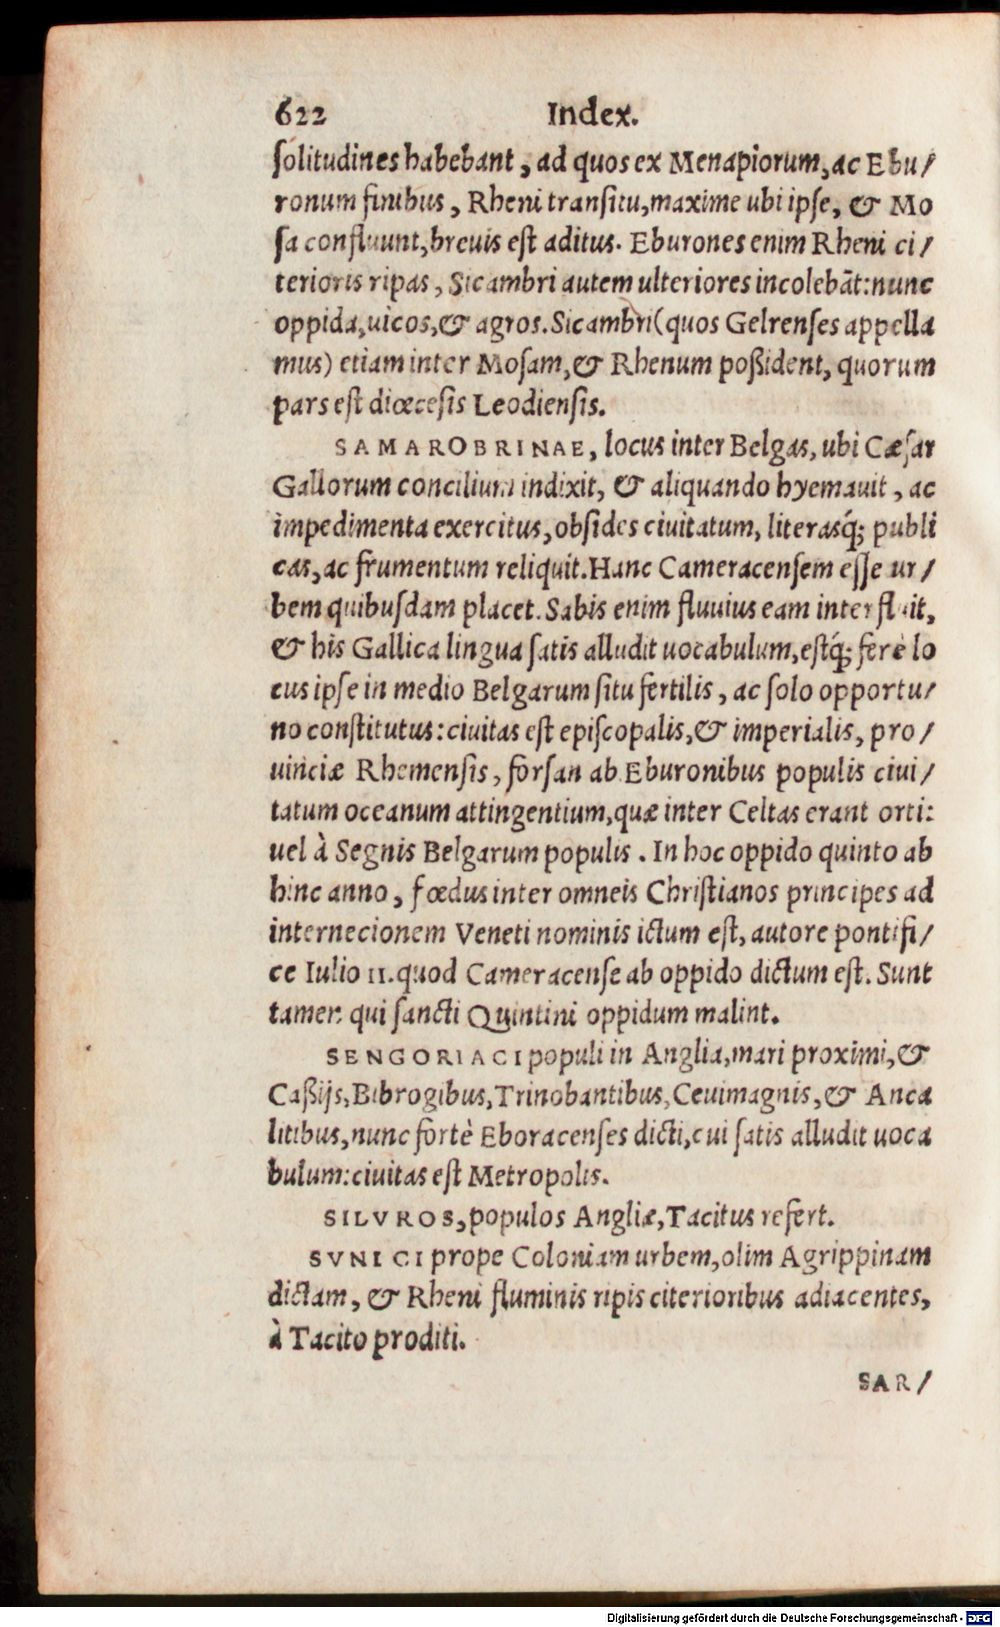 622 Index.
ſolitudines habebant, ad quos ex Menapiorum, ac Ebu/
ronum finibus, Rheni tranſitu, maxime ubi ipſe, & Mo
ſa confluunt, breuis eſt aditus. Eburones enim Rheni ci/
terioris ripas, Sicambri autem ulteriores incolebãt: nunc
oppida, uicos, & agros. Sicambri (quos Gelrenſes appella
mus) etiam inter Moſam, & Rhenum poßident, quorum
pars eſt diœceſis Leodienſis.
SAMAROBRINAE, locus inter Belgas, ubi Cæſar
Gallorum concilium indixit, & aliquando hyemauit, ac
impedimenta exercitus, obſides ciuitatum, literasq́; publi
cas, ac frumentum reliquit. Hanc Cameracenſem eſſe ur/
bem quibuſdam placet. Sabis enim fluuius eam interfluit,
& his Gallica lingua ſatis alludit uocabulum, eſtq́; ferè lo
cus ipſe in medio Belgarum ſitu fertilis, ac ſolo opportu/
no conſtitutus: ciuitas eſt epiſcopalis, & imperialis, pro/
uinciæ Rhemenſis, forſan ab Eburonibus populis ciui/
tatum oceanum attingentium, quæ inter Celtas erant orti:
uel à Segnis Belgarum populis. In hoc oppido quinto ab
hinc anno, fœdus inter omneis Chriſtianos principes ad
internecionem Veneti nominis ictum eſt, autore pontifi/
ce Iulio II. quod Cameracenſe ab oppido dictum eſt. Sunt
tamen qui ſancti Quintini oppidum malint.
SENGORIACI populi in Anglia, mari proximi, &
Caßijs, Bibrogibus, Trinobantibus, Ceuimagnis, & Anca
litibus, nunc fortè Eboracenſes dicti, cui ſatis alludit uoca
bulum: ciuitas eſt Metropolis.
SILVROS, populos Angliæ, Tacitus refert.
SVNICI prope Coloniam urbem, olim Agrippinam
dictam, & Rheni fluminis ripis citerioribus adiacentes,
à Tacito proditi.
SAR/
Digitalisierung gefördert durch die Deutsche Forschungsgemeinschaft - DFG